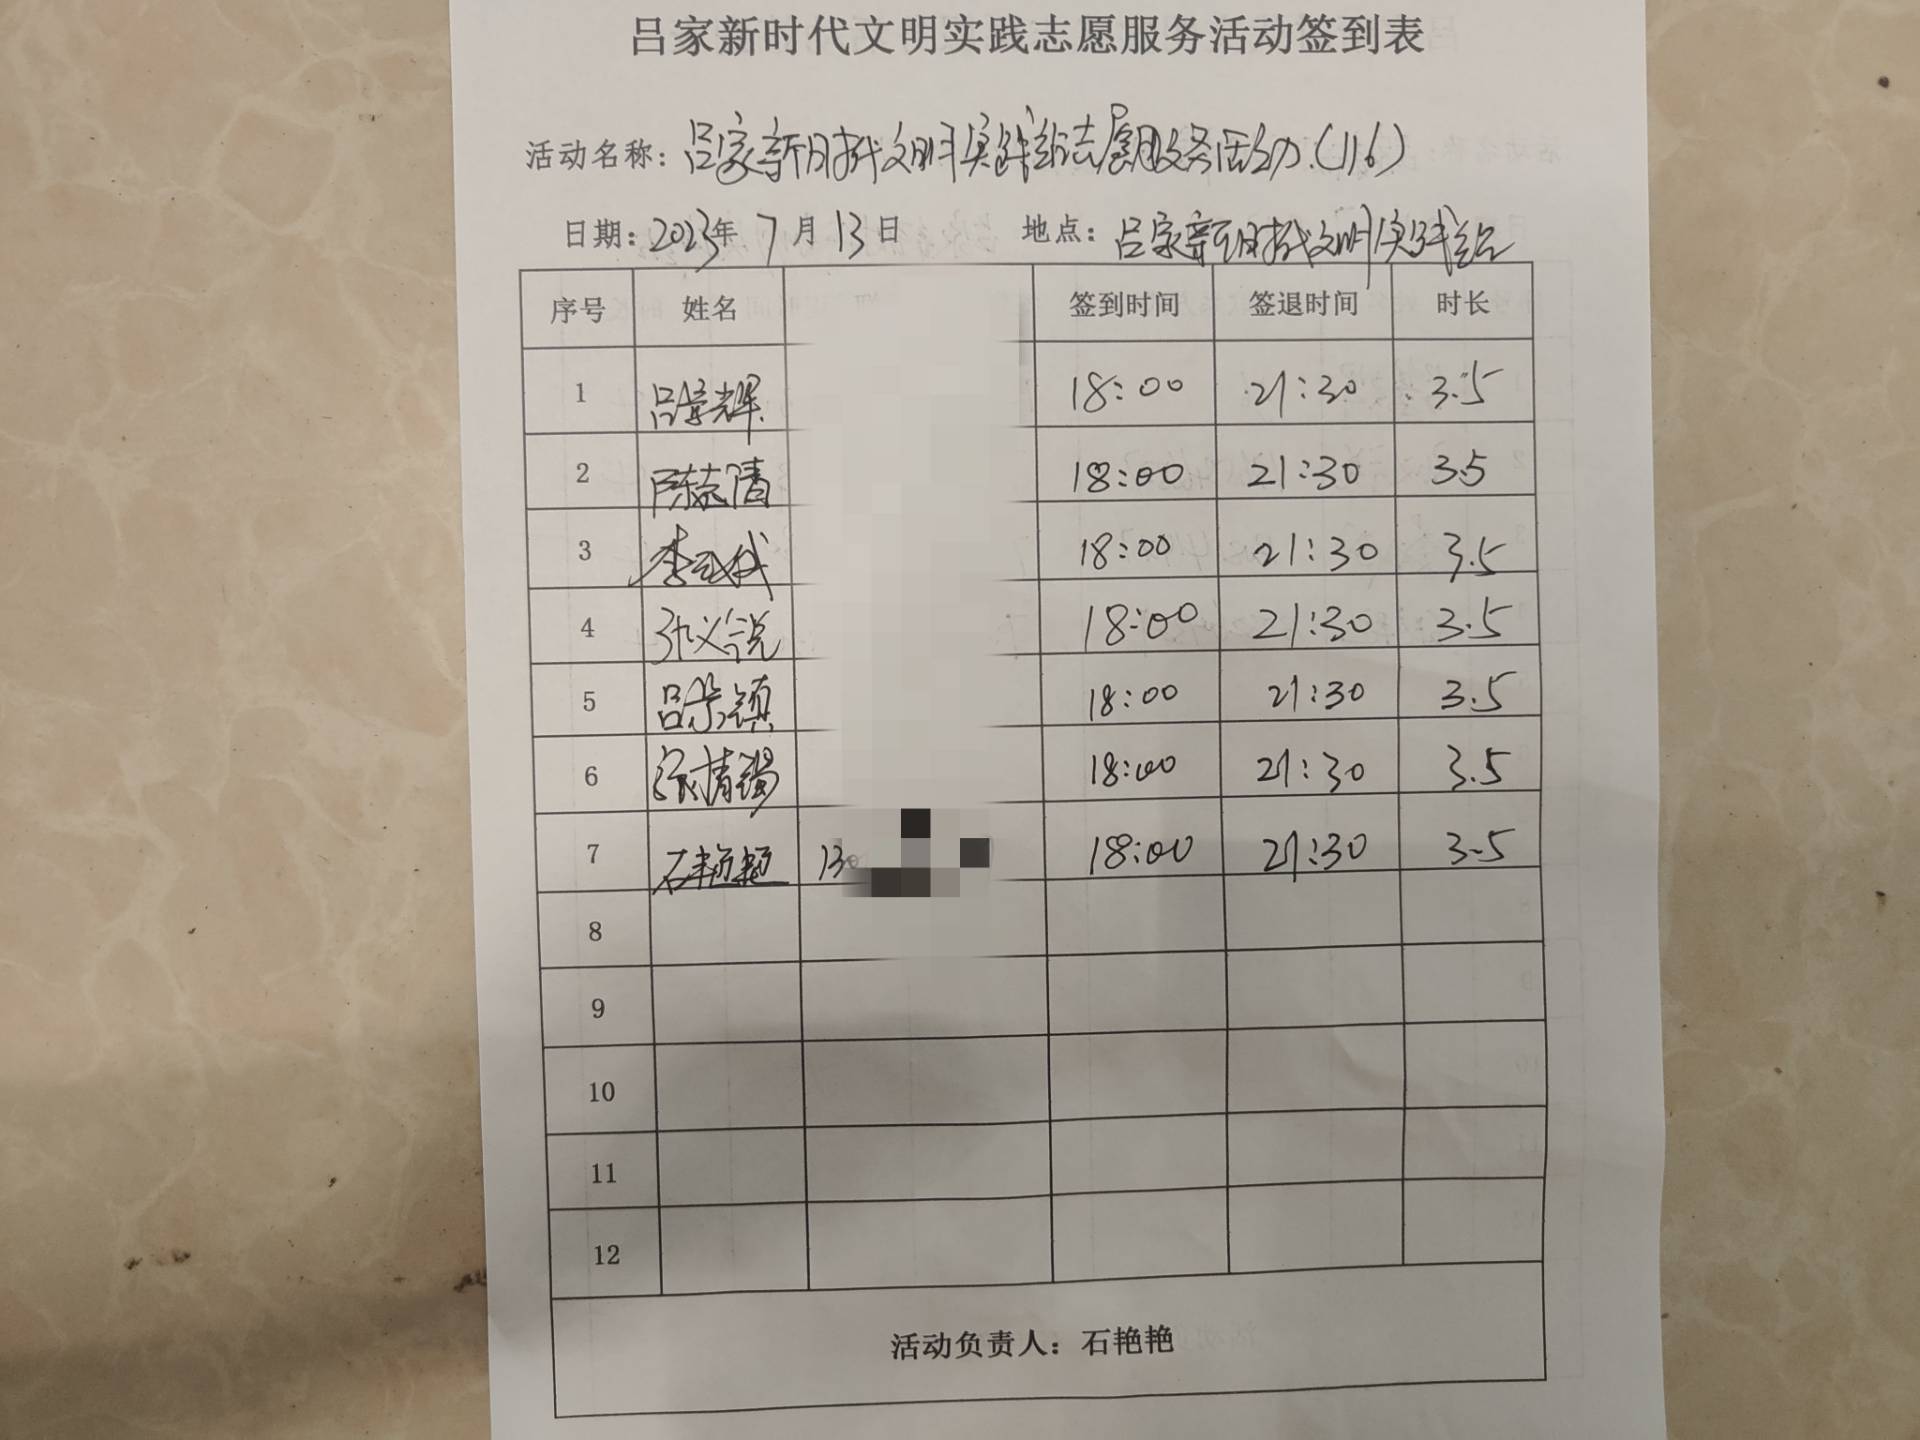 吕家新时代文明实践志愿服务活动签到表
活动名称：吕家新时代文明实践站志愿服务活动.（116）
日期：2023年 7月 13日 地点：吕家新时代文明实践站
序号 姓名 签到时间 签退时间 时长
1 吕 辉 18:00 21:30 3.5
2 陈志清 18:00 21:30 3.5
3 李 18:00 21:30 3.5
4 张义 18:00 21:30 3.5
5 吕 镇 18:00 21:30 3.5
6 18:00 21:30 3.5
7 石艳艳 130 18:00 21:30 3.5
8
9
10
11
12
活动负责人：石艳艳